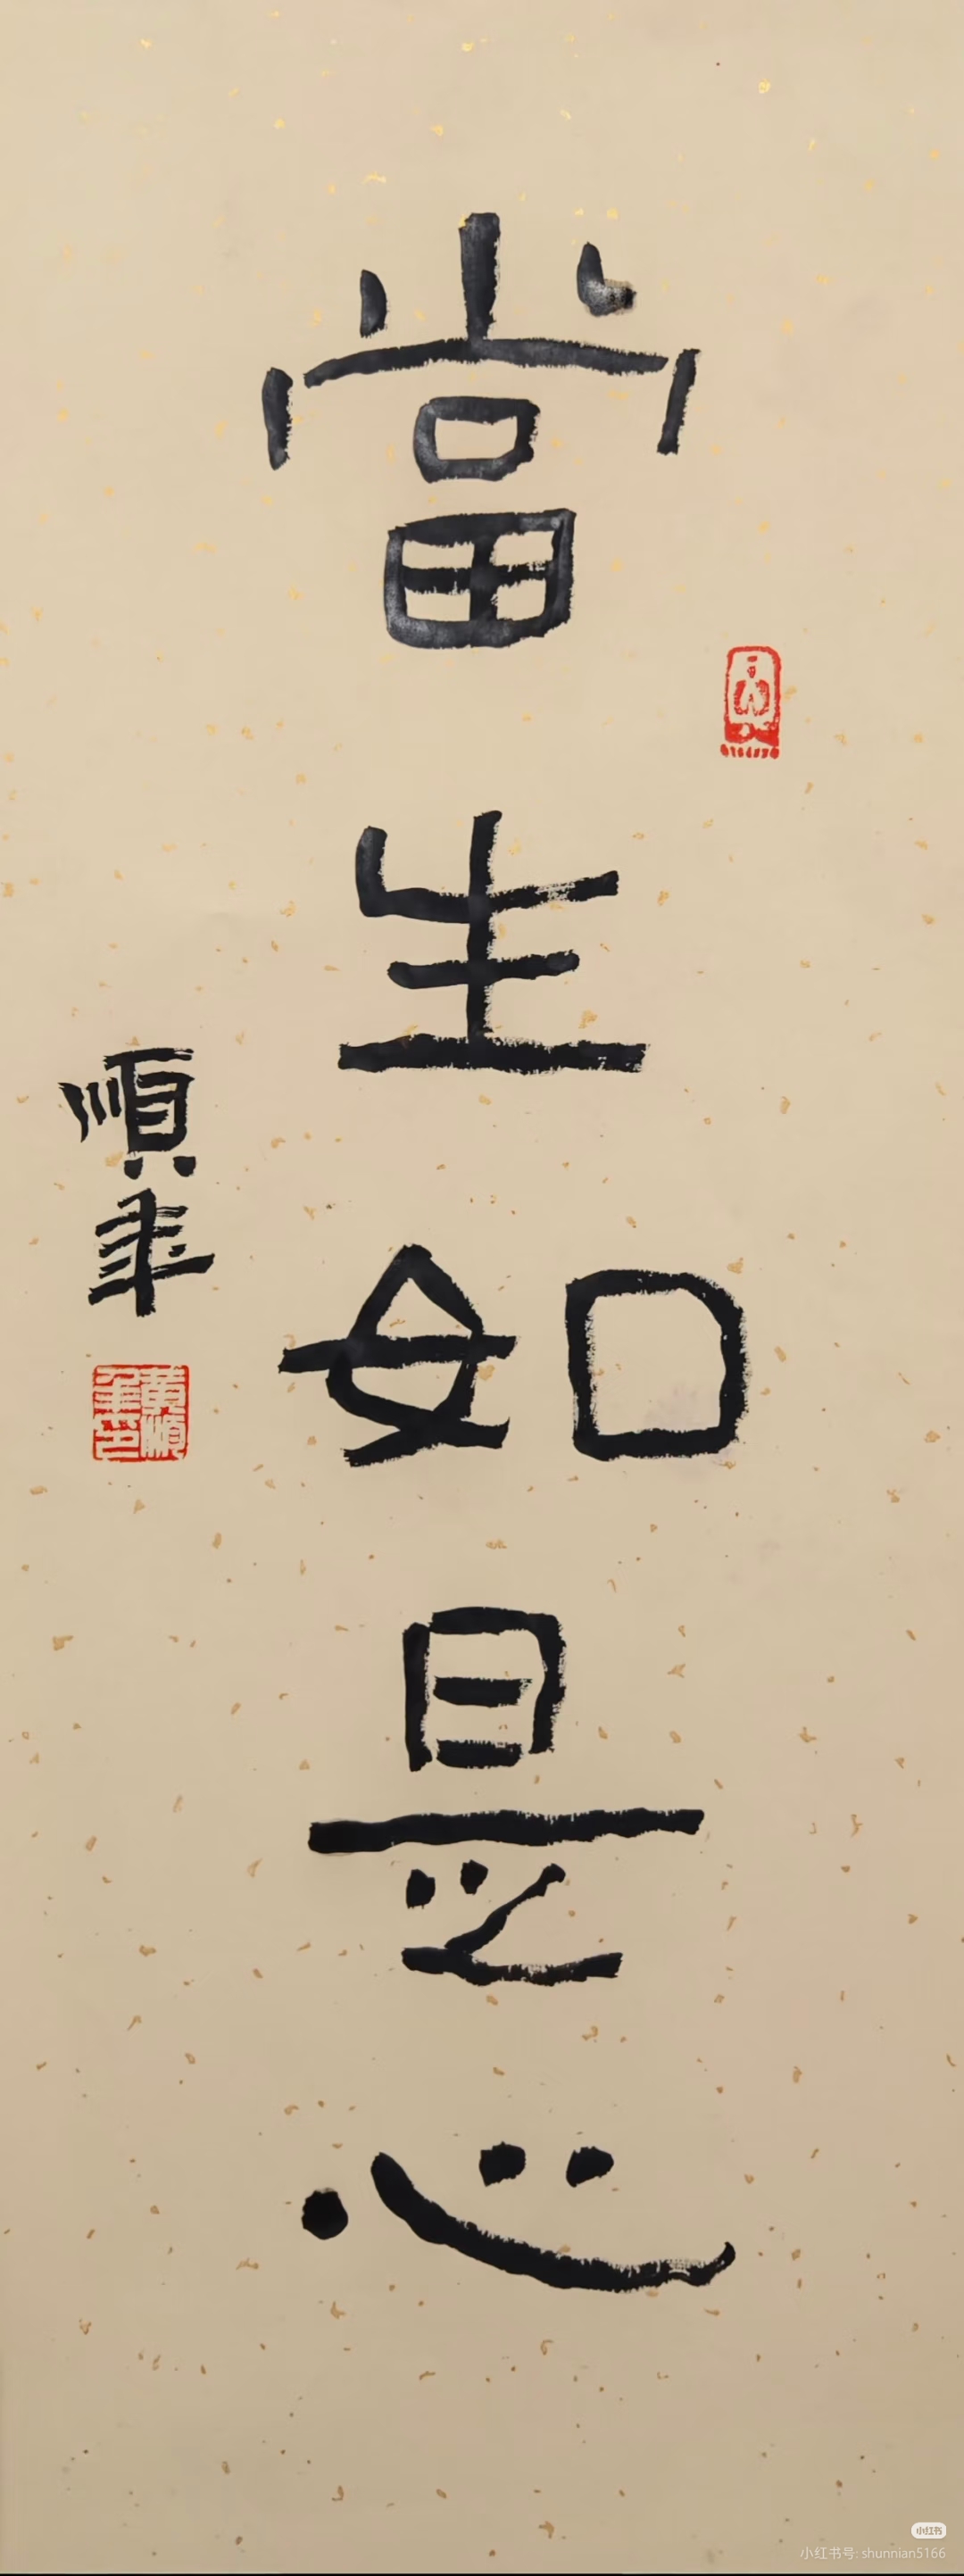 當生如是心
順年
黃順年印
小红书
小红书号: shunnian5166